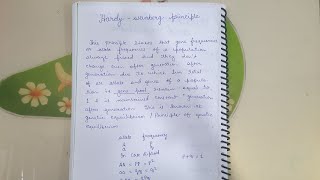 Hardy-wanberg principle
This principle states that gene frequency
or allele frequencies of a population
always fixed and they don't
change even after generation after
generation due to which the total
of all allele and genes of a popula-
tion is gene pool remain equal to
1. It is maintained constant generation
after generation. This is known as
genetic equilibrium / Principle of genetic
equilibrium
allele frequency
A p
a q
In case diploid p+q = 1
AA = PP = P²
aa = qq = q²